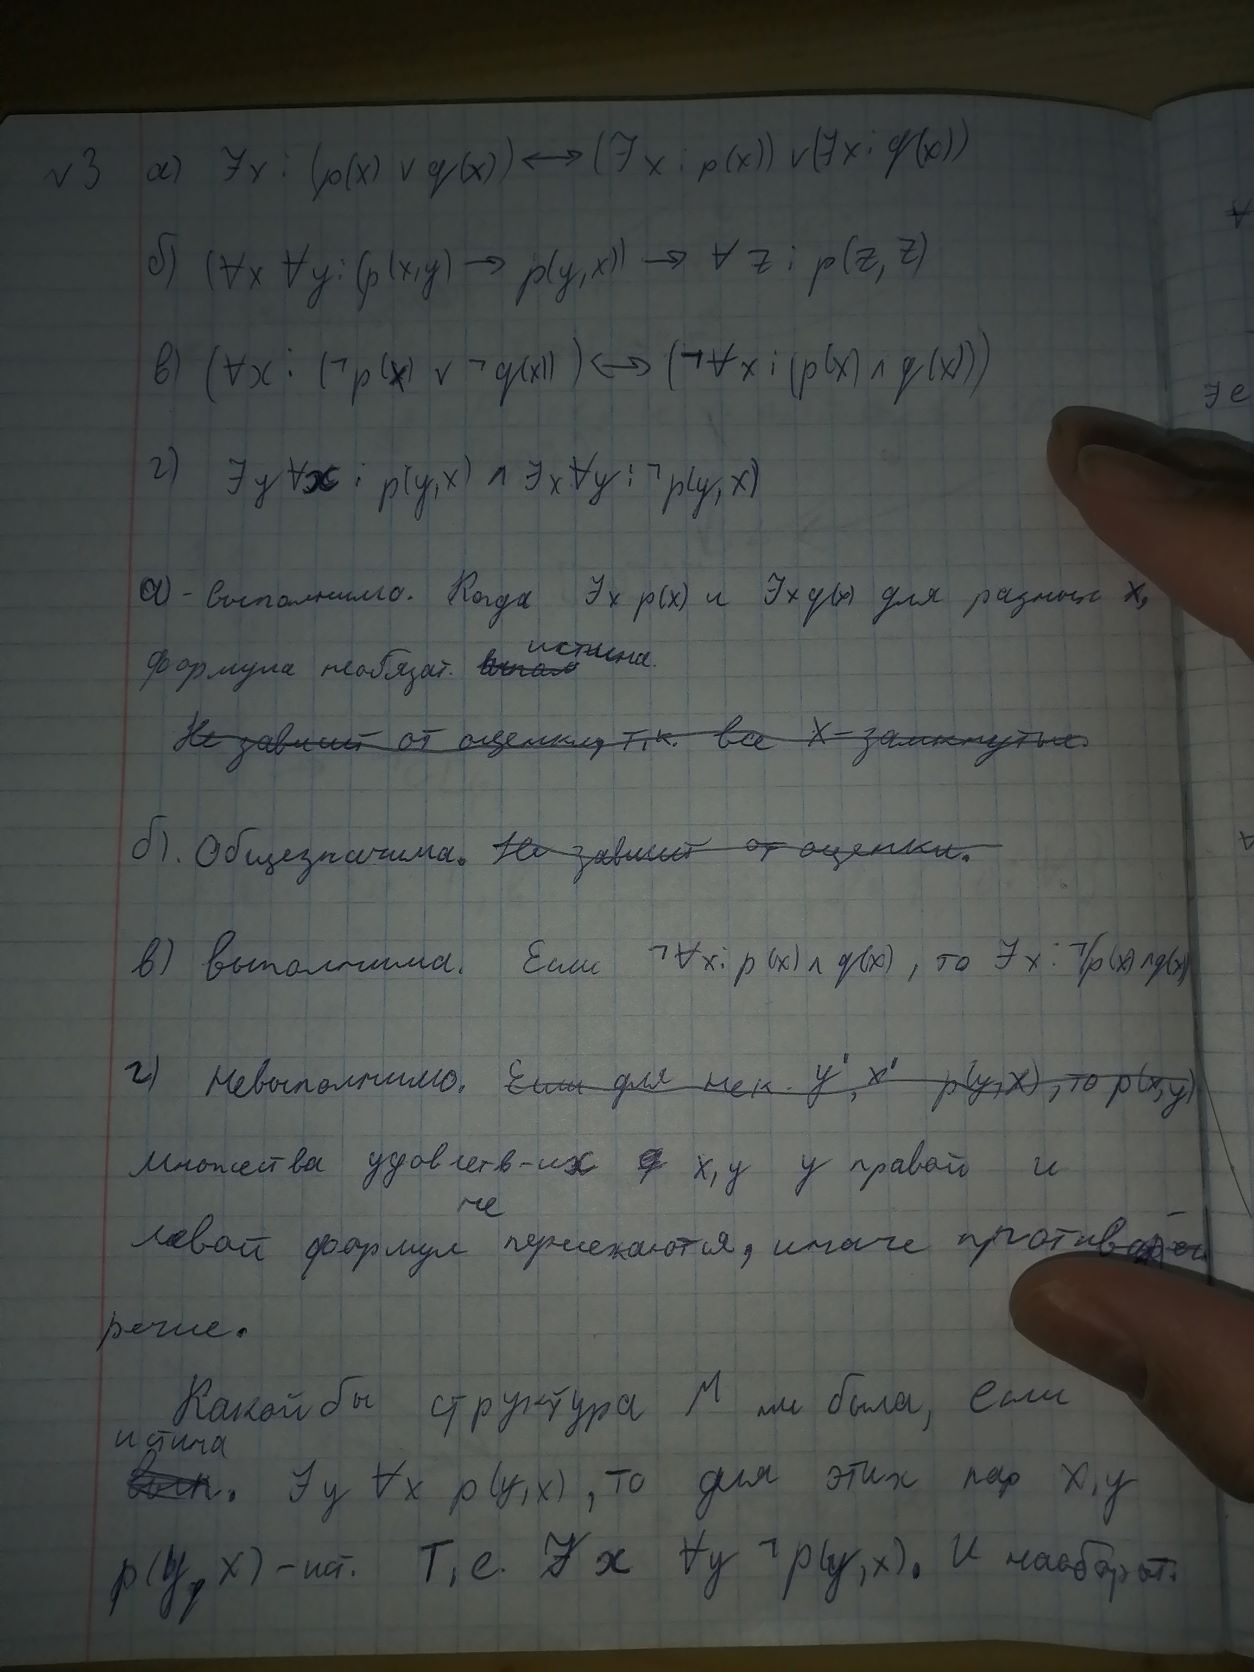 √3 а) ∃x : (p(x) ∨ q(x)) ↔ (∃x : p(x)) ∨ (∃x : q(x))
б) (∀x ∀y : (p(x,y) → p(y,x)) → ∀z : p(z,z)
в) (∀x : (¬p(x) ∨ ¬q(x))) ↔ (¬∀x : (p(x) ∧ q(x)))
г) ∃y ∀x : p(y,x) ∧ ∃x ∀y : ¬p(y,x)
а) - выполнимо. Когда ∃x p(x) и ∃x q(x) для разных x,
формула необязат. истина.
Не зависит от оценки, т.к. все x - замкнутые.
б). Общезначима. Не зависит от оценки.
в) выполнима. Если ¬∀x : p(x) ∧ q(x), то ∃x : ¬(p(x) ∧ q(x)
г) невыполнимо. Если для нек. y', x' p(y,x), то p(x,y)
множества удовлетв-их x, y у правой и
левой формул не пересекаются, иначе против
речие.
Какой бы структура M ни была, если
истина ∃y ∀x p(y,x), то для этих пар x, y
p(y, x) - ист. Т.е. ∄x ∀y ¬p(y,x). И наоборот.
∀
∃e
∀